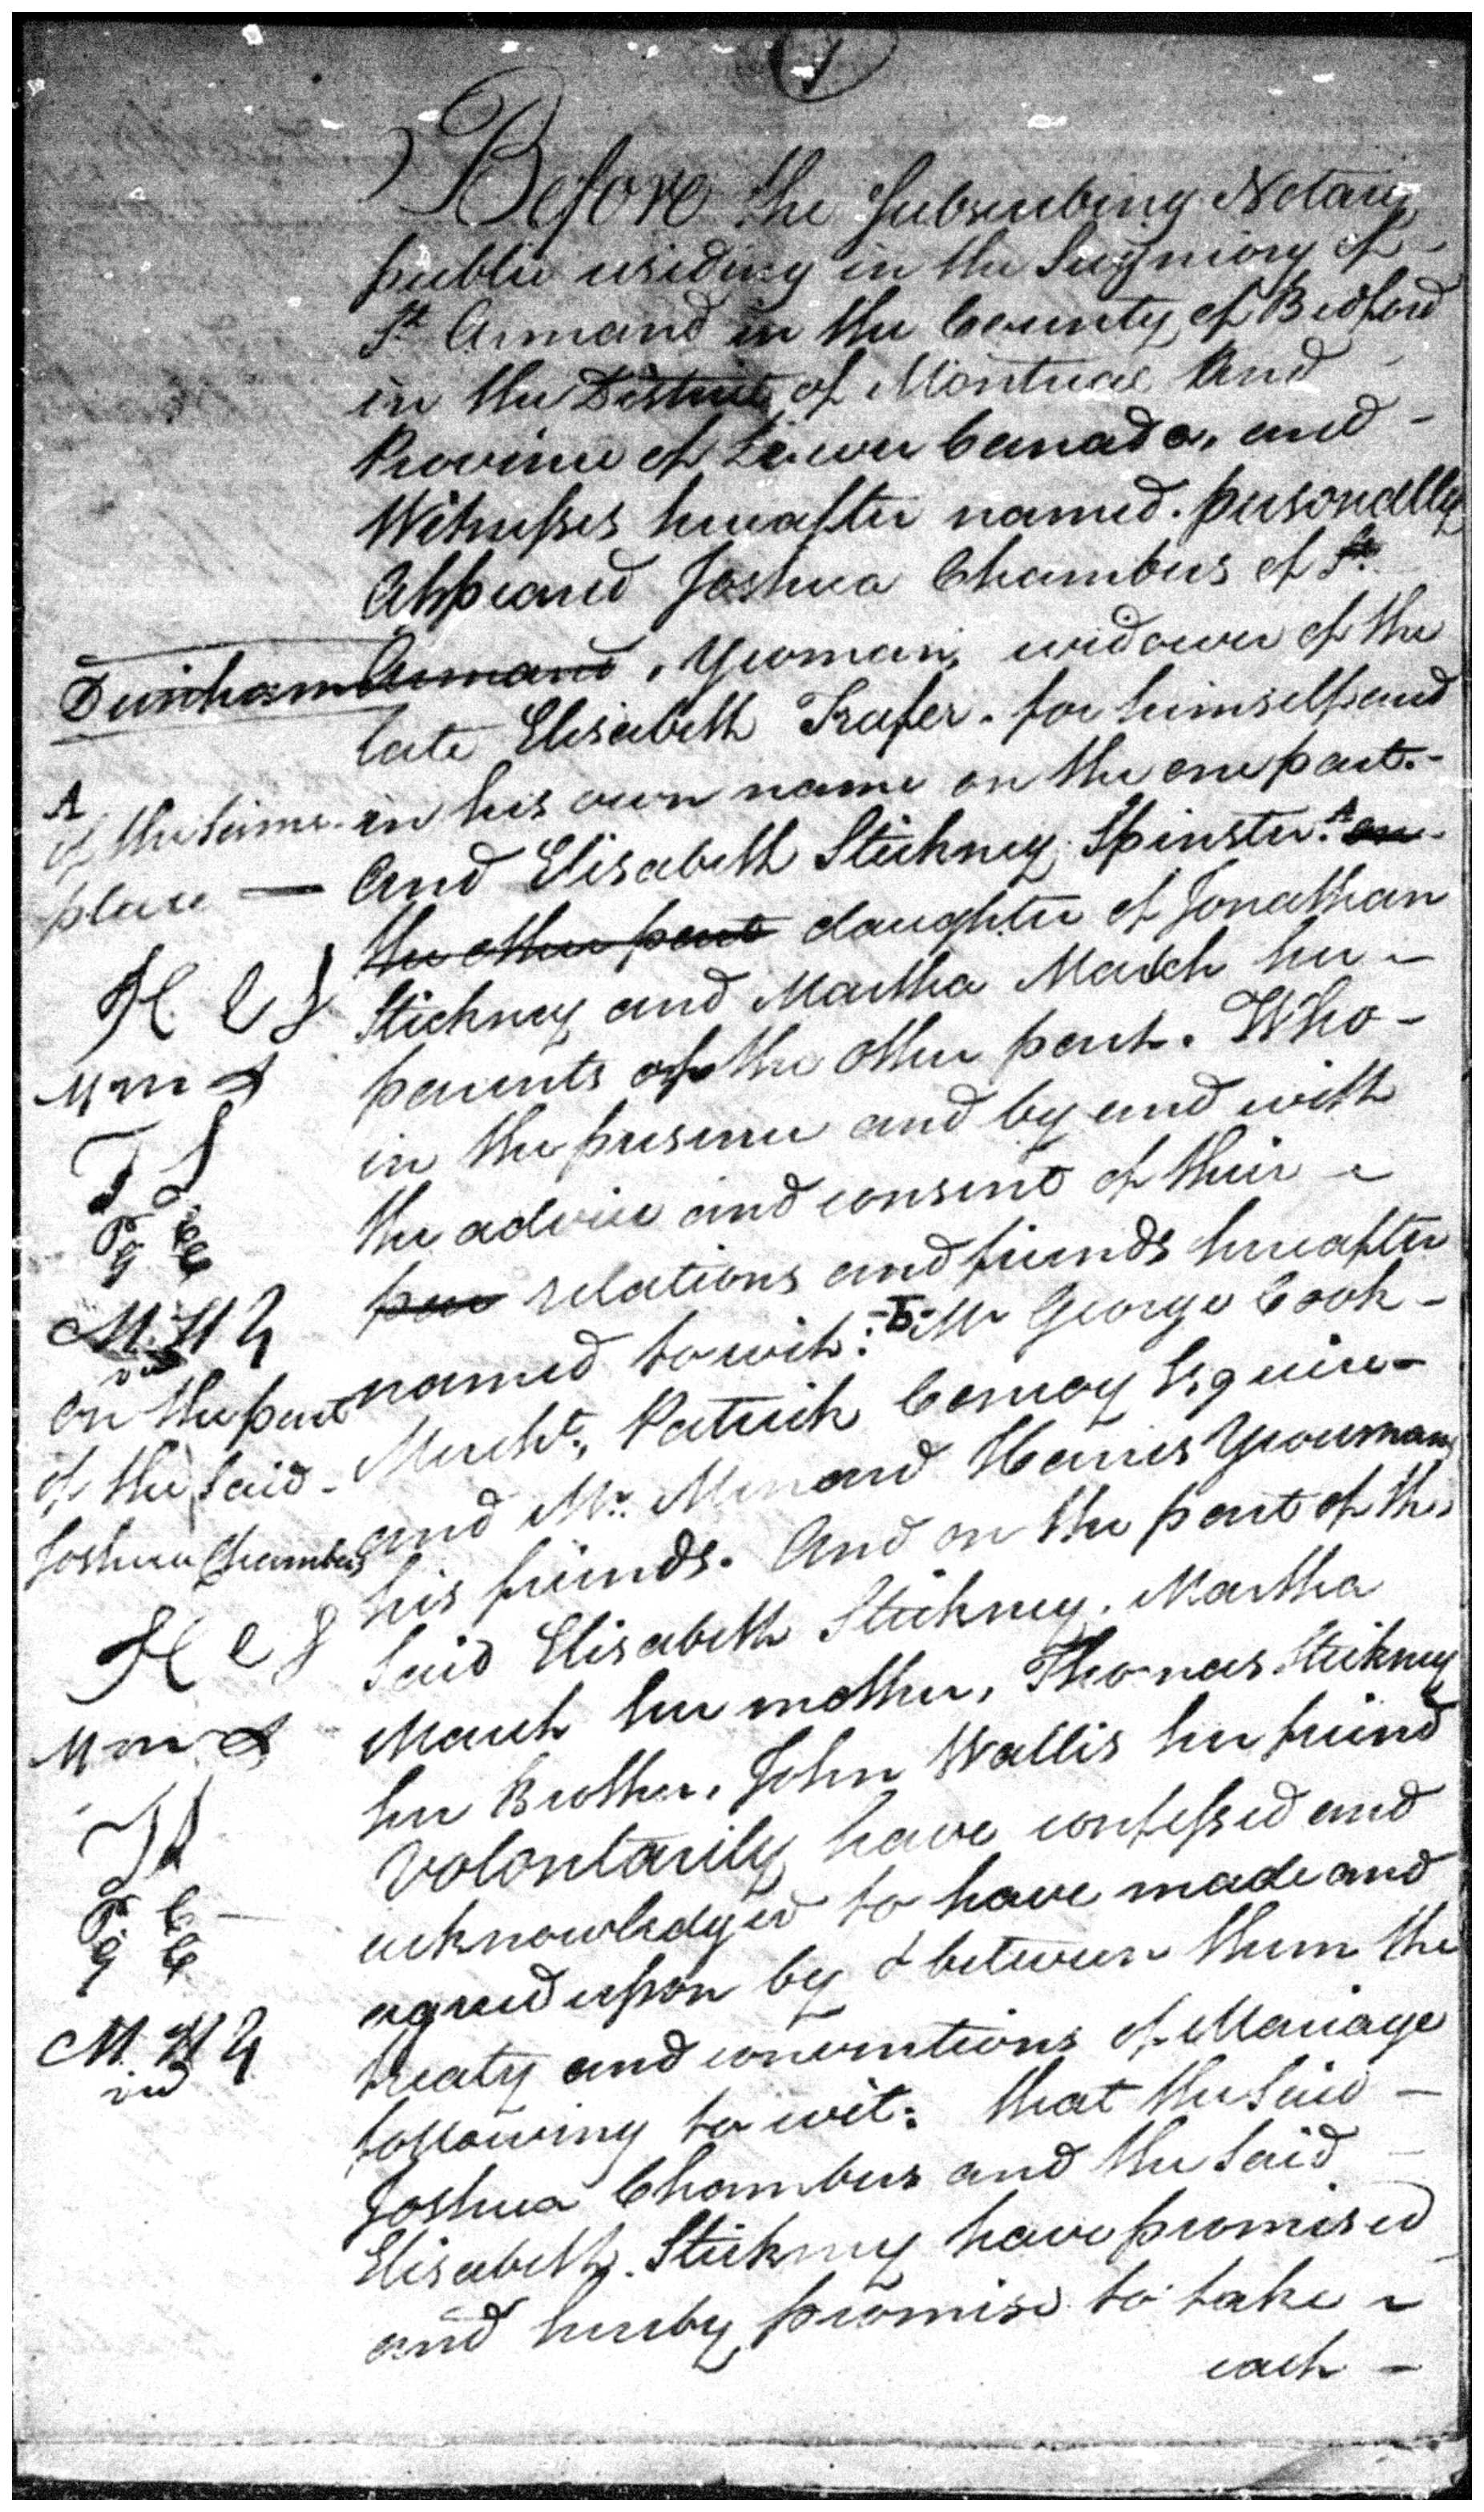 1
Before the Subscribing Notary
public residing in the Seigniory of -
St Armand in the County of Bedford
in the District of Montreal and
Province of Lower Canada, and -
Witnesses hereafter named. personally
Appeared Joshua Chambers of St
Dunham Armand, Yeoman, widower of the
late Elisabeth Trafer. for himself and
in his own name on the one part. -
And Elisabeth Stickney Spinster. A on
the other part daughter of Jonathan
Stickney and Martha March her -
parents of the other part. Who -
in the presence and by and with
the advice and consent of their -
par relations and friends hereafter
named to wit: Mr George Cook -
Mercht, Patrick Conroy Esquire -
and Mr. Menard Harris Yeoman
his friends. And on the part of the
Said Elisabeth Stickney. Martha
March her mother, Thomas Stickney
her Brother, John Wallis her friend
Volontarily have confessed and
acknowledged to have made and
agreed upon by & between them the
treaty and conventions of Mariage
following to wit: that the Said -
Joshua Chambers and the Said -
Elisabeth Stickney have promised
and hereby promise to take -
each -
A
of the Same
place —
H e S
M m S
T S
P C
G C
M H
on the part
of the Said -
Joshua Chambers
H e S
M m S
T S
P. C -
G C
M. H